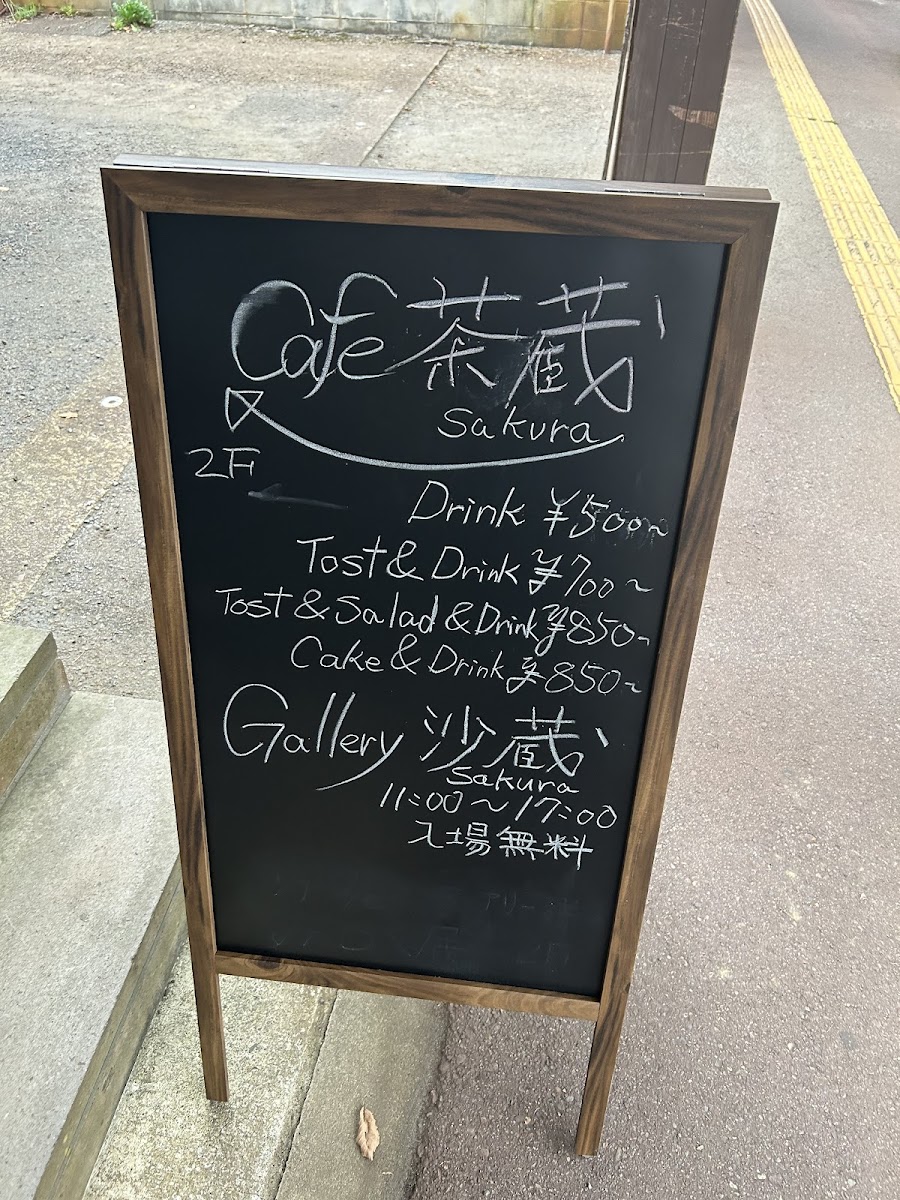 Cafe 茶蔵
sakura
2F
Drink ¥500~
Tost & Drink ¥700~
Tost & Salad & Drink ¥850~
Cake & Drink ¥850~
Gallery 沙蔵
sakura
11:00～17:00
入場無料